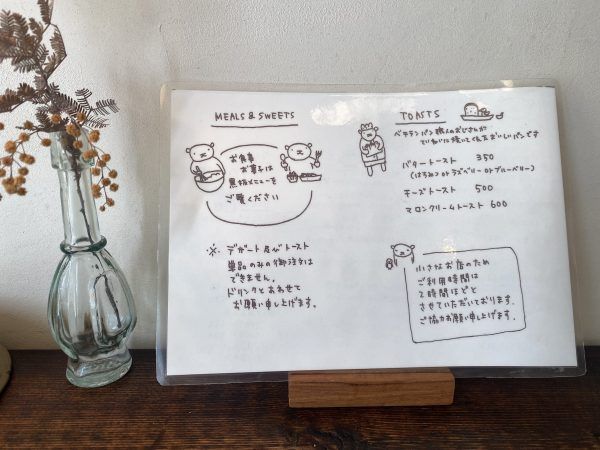 MEALS & SWEETS
お食事
お菓子は
黒板メニューを
ご覧ください
※. デザート及びトースト
単品のみの御注文は
できません。
ドリンクとあわせて
お願い申し上げます。
TOASTS
ベテランパン職人のおじさんが
ていねいに焼いてくれたおいしいパンです
バタートースト 350
(はちみつ or ラズベリー or ブルーベリー)
チーズトースト 500
マロンクリームトースト 600
小さなお店のため
ご利用時間は
2時間ほどと
させていただいております。
ご協力お願い申し上げます。